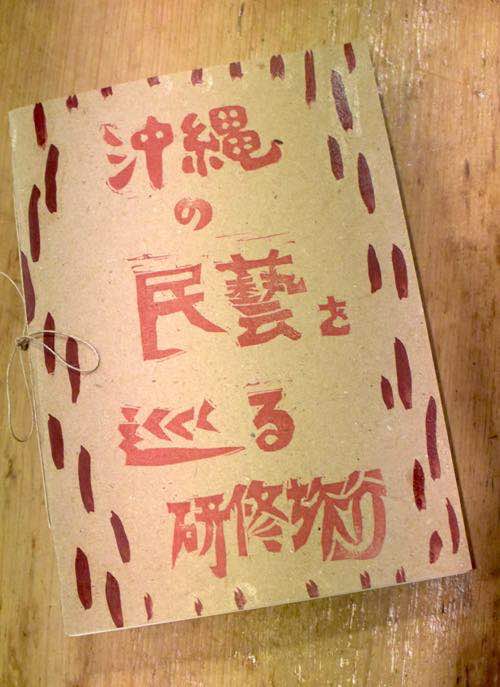 沖縄
の
民藝を
巡る
研修旅